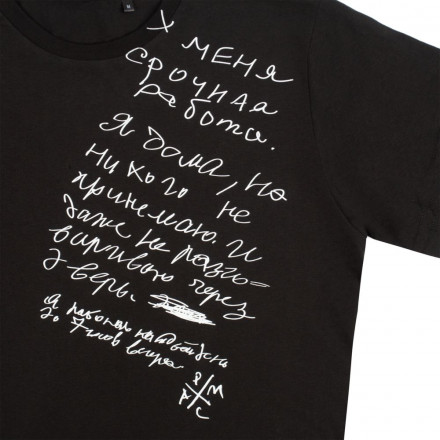 У МЕНЯ
СРОЧНАЯ
работа.
Я дома, но
никого не
принимаю. И
даже не разго=
вариваю через
дверь.
Я работаю каждый день
до 7 часов вечера
Р М
А С